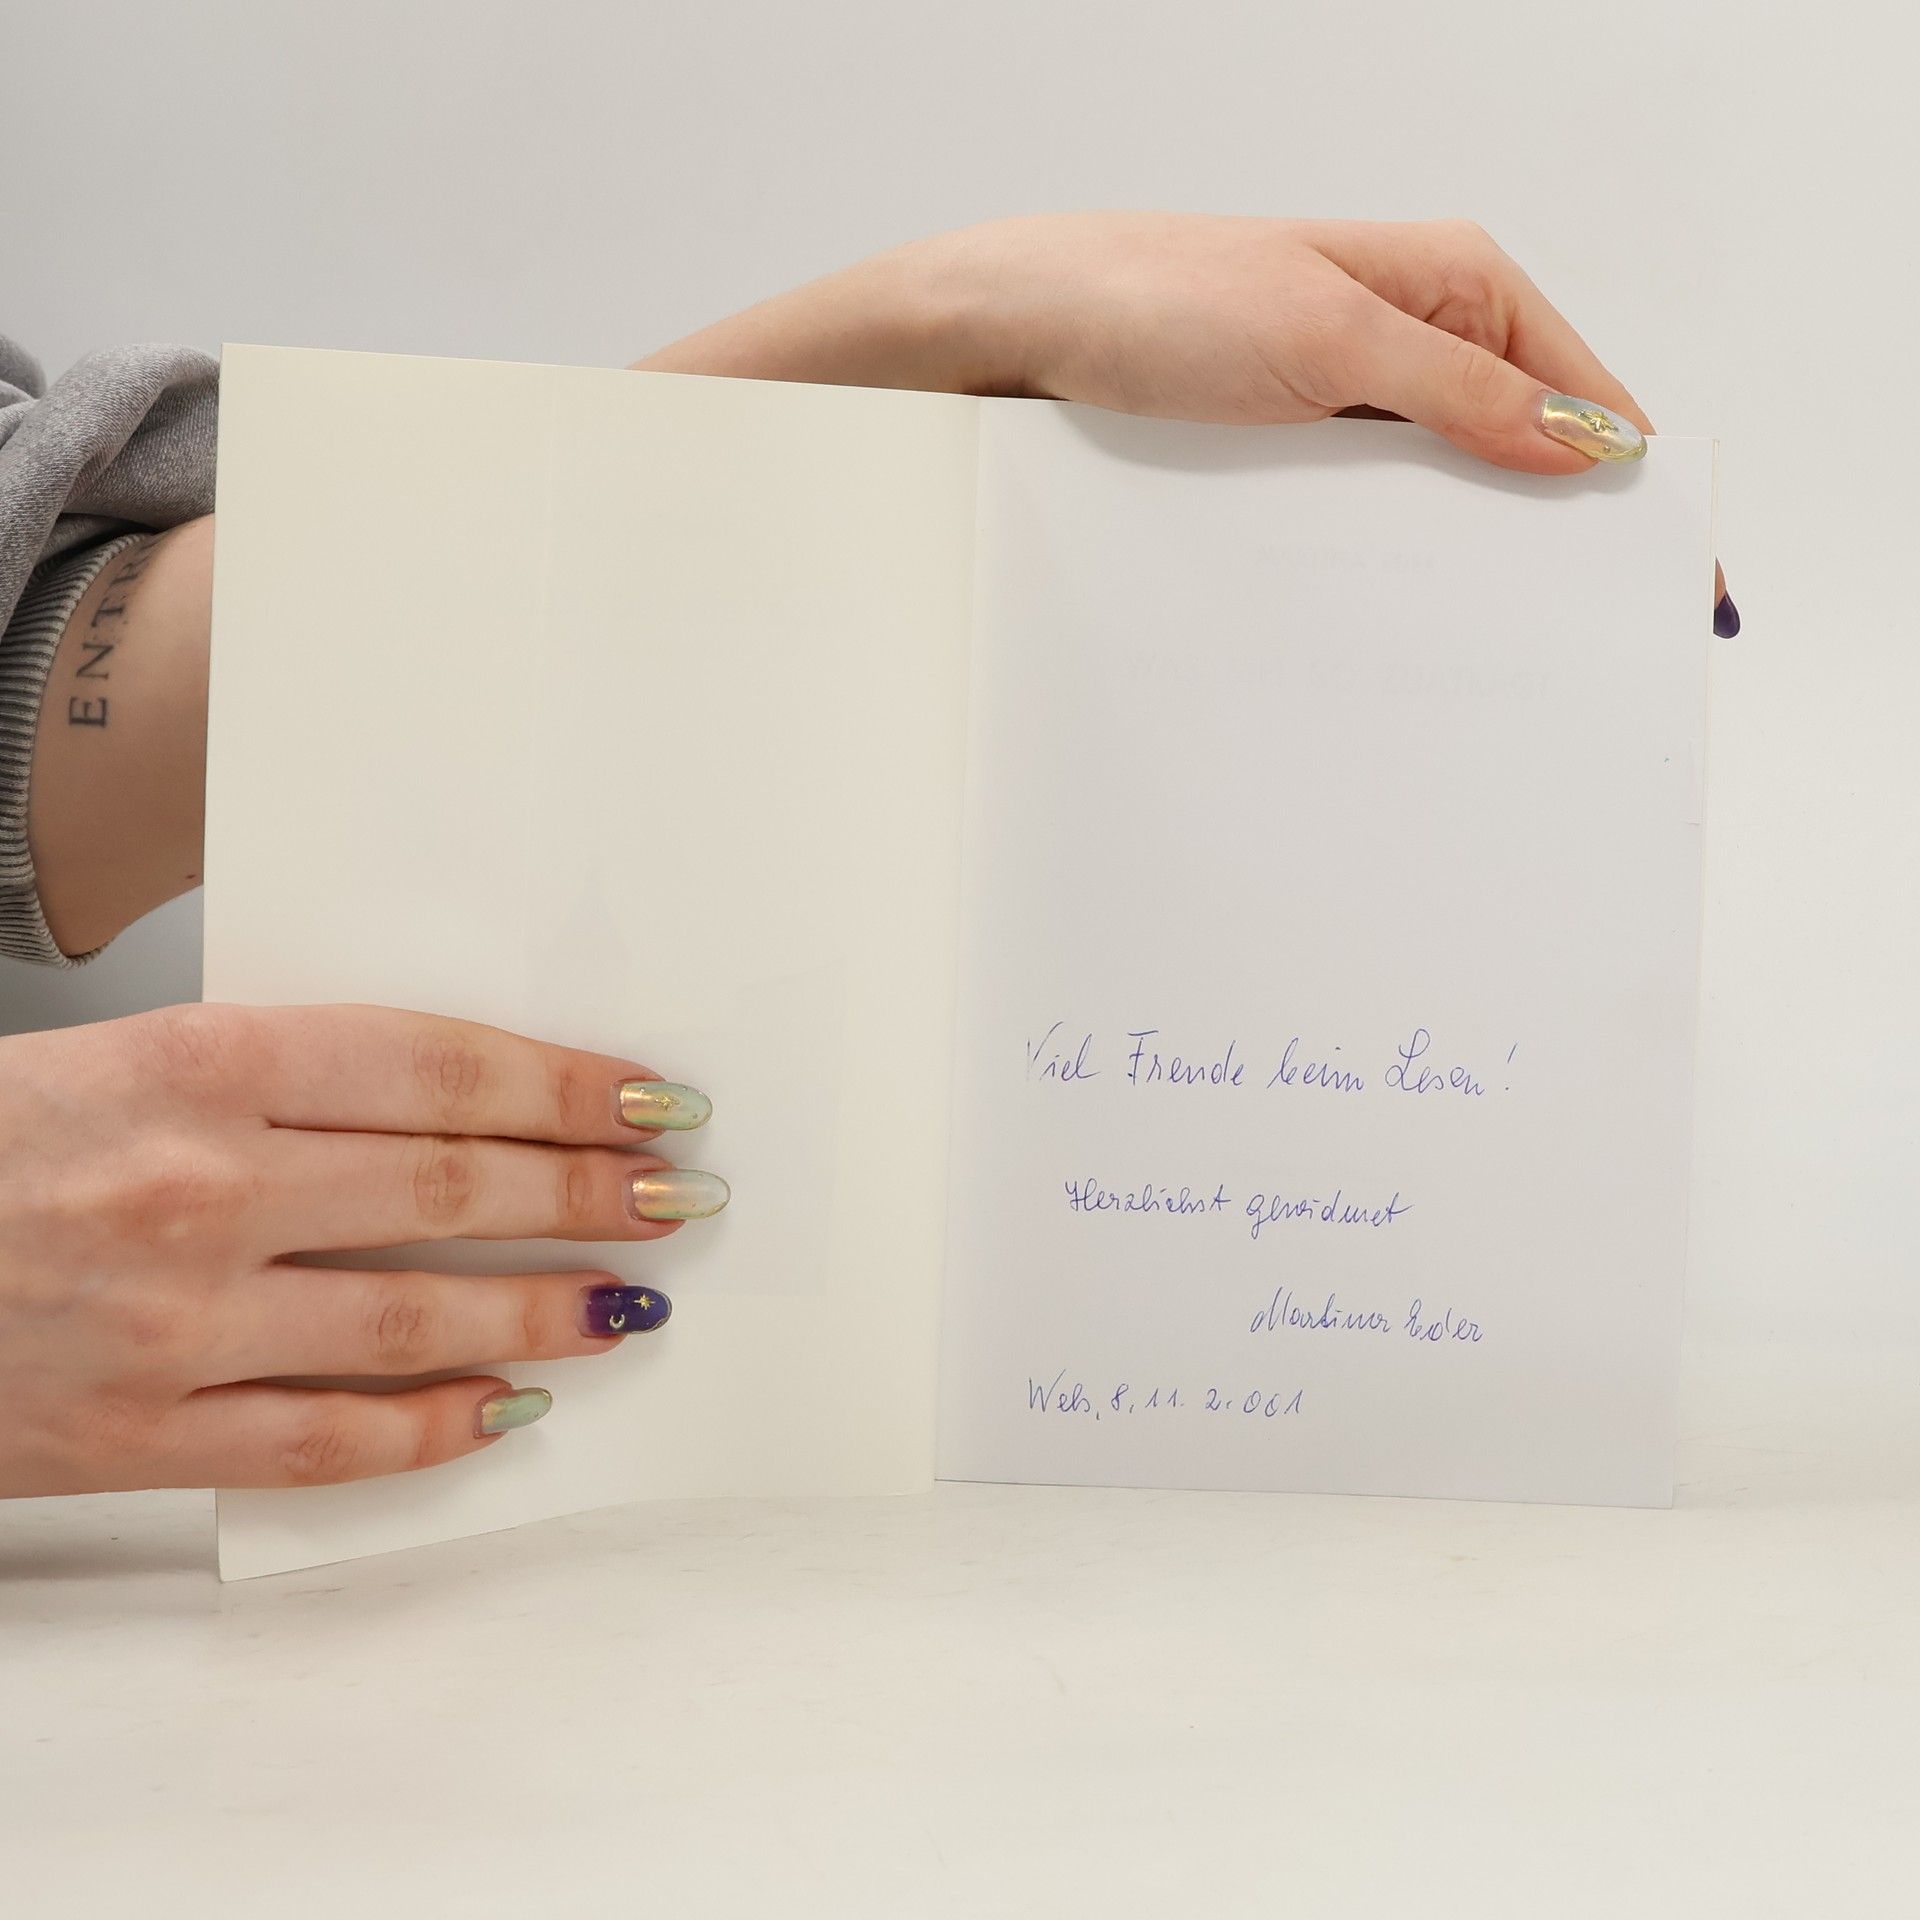 ENTR
Viel Freude beim Lesen!
Herzlichst gewidmet
Martina Eder
Wels, 8. 11. 2.001